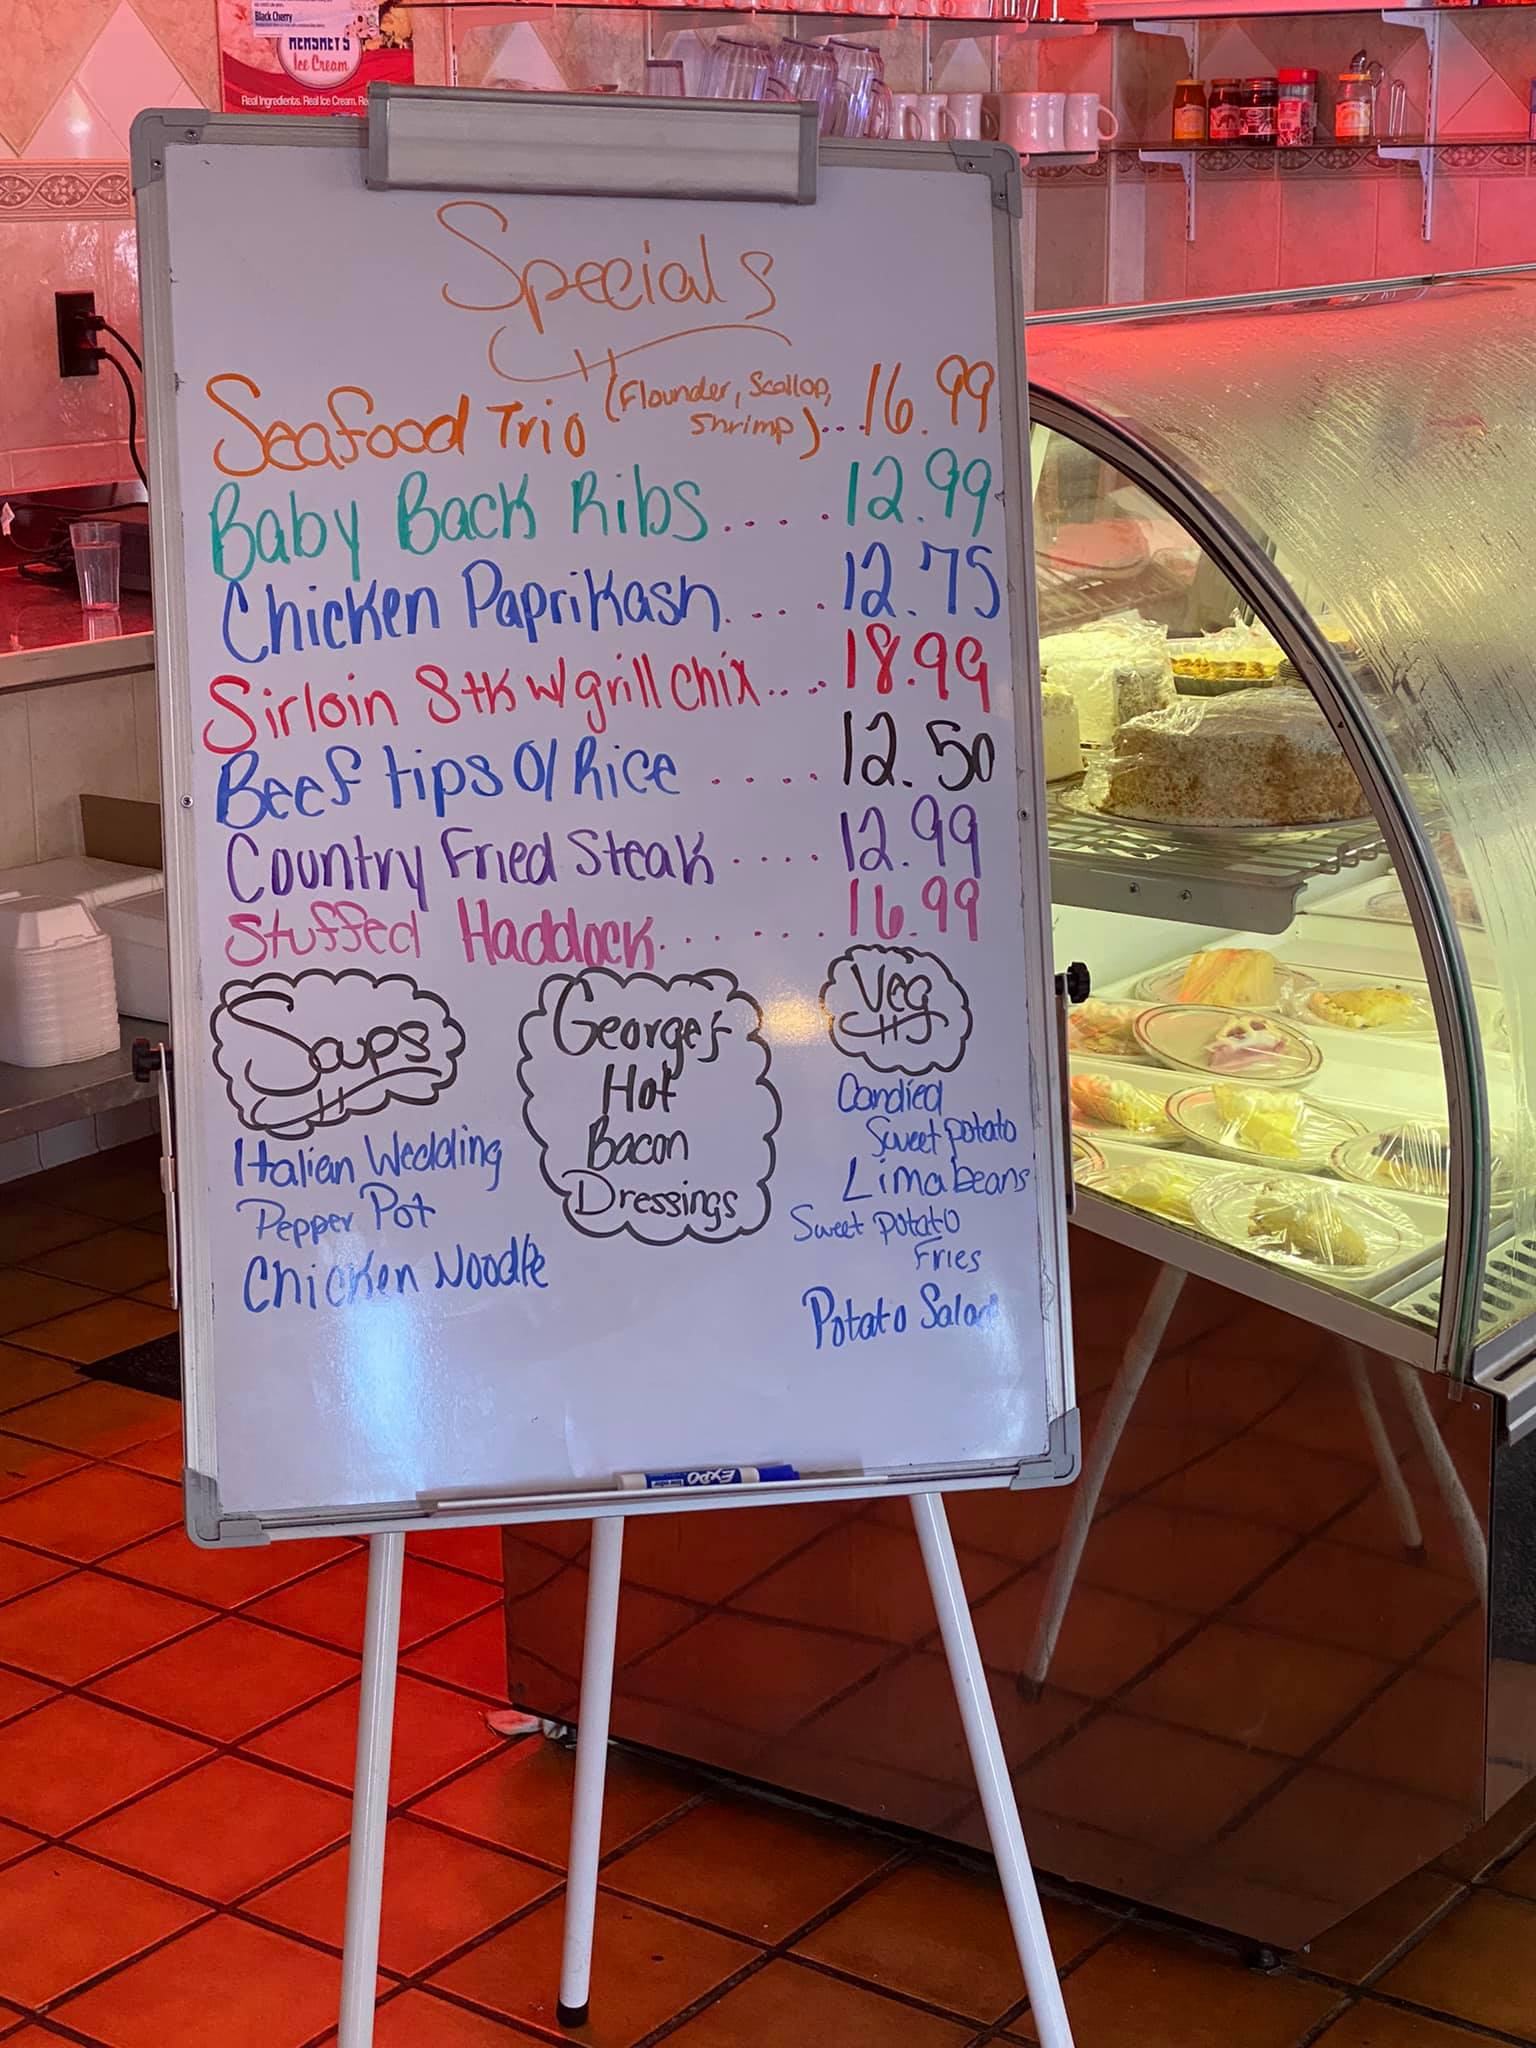 Black Cherry
HERSHEY'S
Ice Cream
Real Ingredients. Real Ice Cream. Re
Specials
Seafood Trio (Flounder, Scallop, Shrimp)...16.99
Baby Back Ribs.....12.99
Chicken Paprikash.....12.75
Sirloin Stk w/grill chix....18.99
Beef tips O/Rice.....12.50
Country Fried Steak....12.99
Stuffed Haddock.......16.99
Soups
Italian Wedding
Pepper Pot
Chicken Noodle
George's
Hot
Bacon
Dressings
Veg
Candied
Sweet potato
Lima beans
Sweet potato
Fries
Potato Salad
EXPO